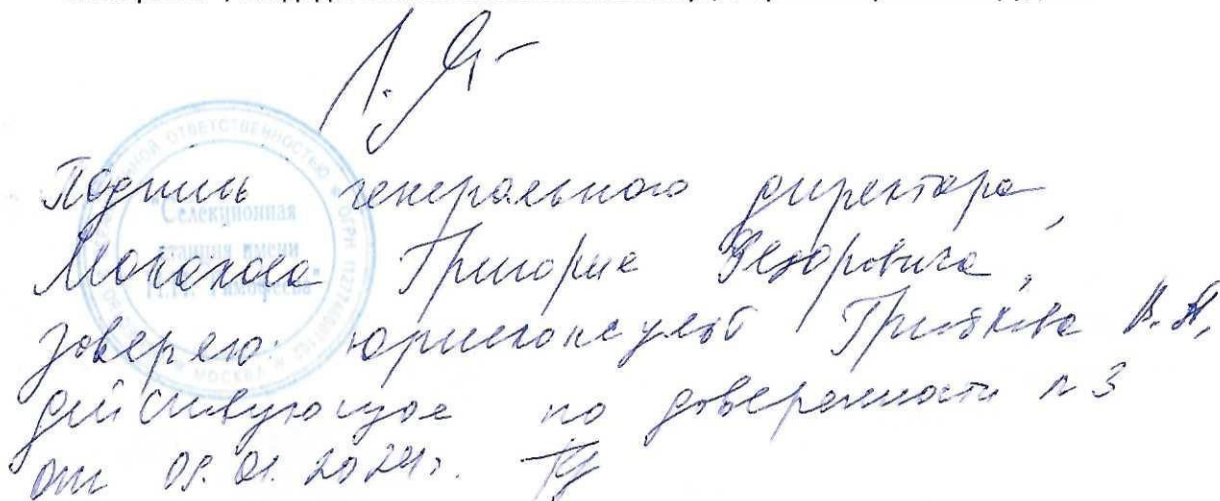 Подпись генерального директора
Монахова Григория Федоровича,
заверяю: юрисконсульт
действующая по доверенности № 3
от 09.01.2024г.
ОТВЕТСТВЕННОСТЬЮ
"Селекционная
станция имени
Н.Н. Тимофеева"
МОСКВА